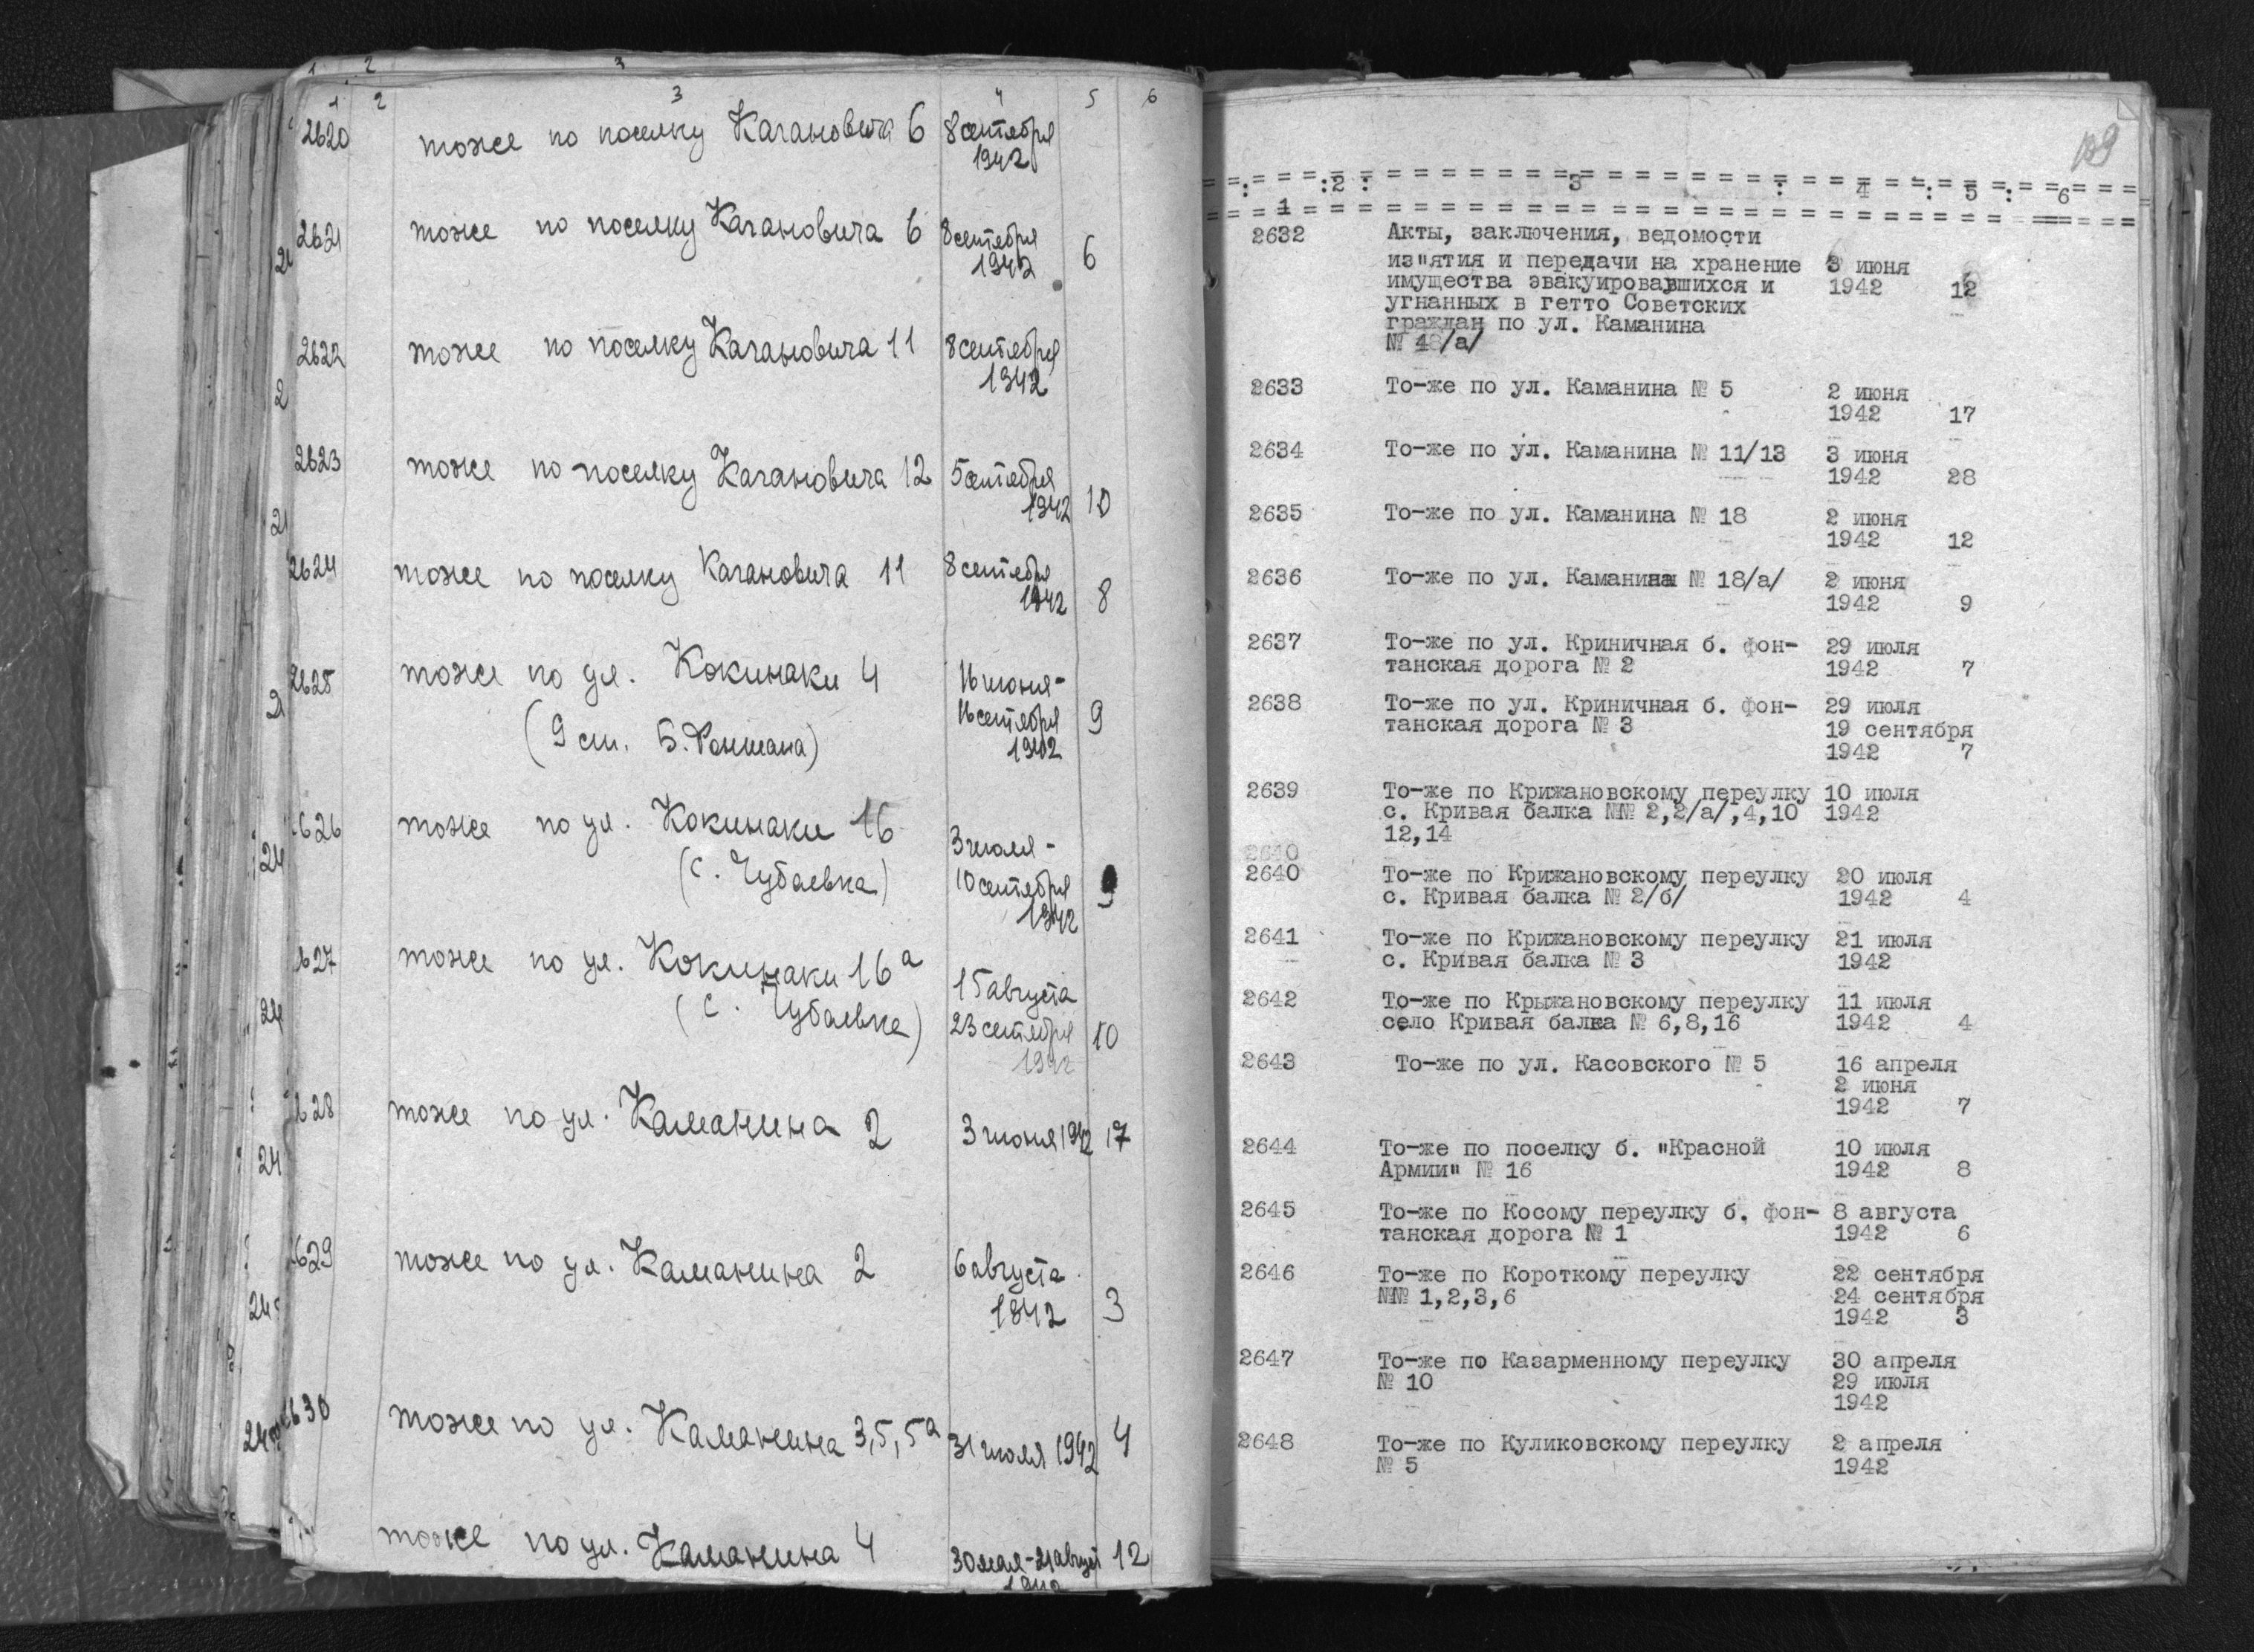 1 2 3
1 2 3 4 5 6
2620 тоже по поселку Кагановича 6 8 сентября
1942
2621 тоже по поселку Кагановича 6 8 сентября
1942 6
2622 тоже по поселку Кагановича 11 8 сентября
1942
2623 тоже по поселку Кагановича 12 5 сентября
1942 10
2624 тоже по поселку Кагановича 11 8 сентября
1942 8
2625 тоже по ул. Кокинаки 4 16 июня-
(9 ст. Б. Фонтана) 16 сентября 9
1942
626 тоже по ул. Кокинаки 16
3 июля -
(с. Чубаевка) 10 сентября 9
1942
627 тоже по ул. Кокинаки 16а
15 августа
(с. Чубаевка) 23 сентября 10
1942
628 тоже по ул. Каманина 2 3 июня 1942 17
629 тоже по ул. Каманина 2 6 августа
1842 3
2630 тоже по ул. Каманина 3,5,5а 31 июля 1942 4
тоже по ул. Каманина 4 30 мая-21 август 12
1942
129
1 :2 : 3 : 4 : 5 : 6
2632 Акты, заключения, ведомости
из"ятия и передачи на хранение 3 июня
имущества эвакуировавшихся и 1942 12
угнанных в гетто Советских
граждан по ул. Каманина
№ 48/а/
2633 То-же по ул. Каманина № 5 2 июня
1942 17
2634 То-же по ул. Каманина № 11/13 3 июня
1942 28
2635 То-же по ул. Каманина № 18 2 июня
1942 12
2636 То-же по ул. Каманина № 18/а/ 2 июня
1942 9
2637 То-же по ул. Криничная б. фон- 29 июля
танская дорога № 2 1942 7
2638 То-же по ул. Криничная б. фон- 29 июля
танская дорога № 3 19 сентября
1942 7
2639 То-же по Крижановскому переулку 10 июля
с. Кривая балка №№ 2,2/а/,4,10 1942
12,14
2640
2640 То-же по Крижановскому переулку 20 июля
с. Кривая балка № 2/б/ 1942 4
2641 То-же по Крижановскому переулку 21 июля
с. Кривая балка № 3 1942
2642 То-же по Крыжановскому переулку 11 июля
село Кривая балка № 6,8,16 1942 4
2643 То-же по ул. Касовского № 5 16 апреля
2 июня
1942 7
2644 То-же по поселку б. "Красной 10 июля
Армии" № 16 1942 8
2645 То-же по Косому переулку б. фон- 8 августа
танская дорога № 1 1942 6
2646 То-же по Короткому переулку 22 сентября
№№ 1,2,3,6 24 сентября
1942 3
2647 То-же по Казарменному переулку 30 апреля
№ 10 29 июля
1942
2648 То-же по Куликовскому переулку 2 апреля
№ 5 1942